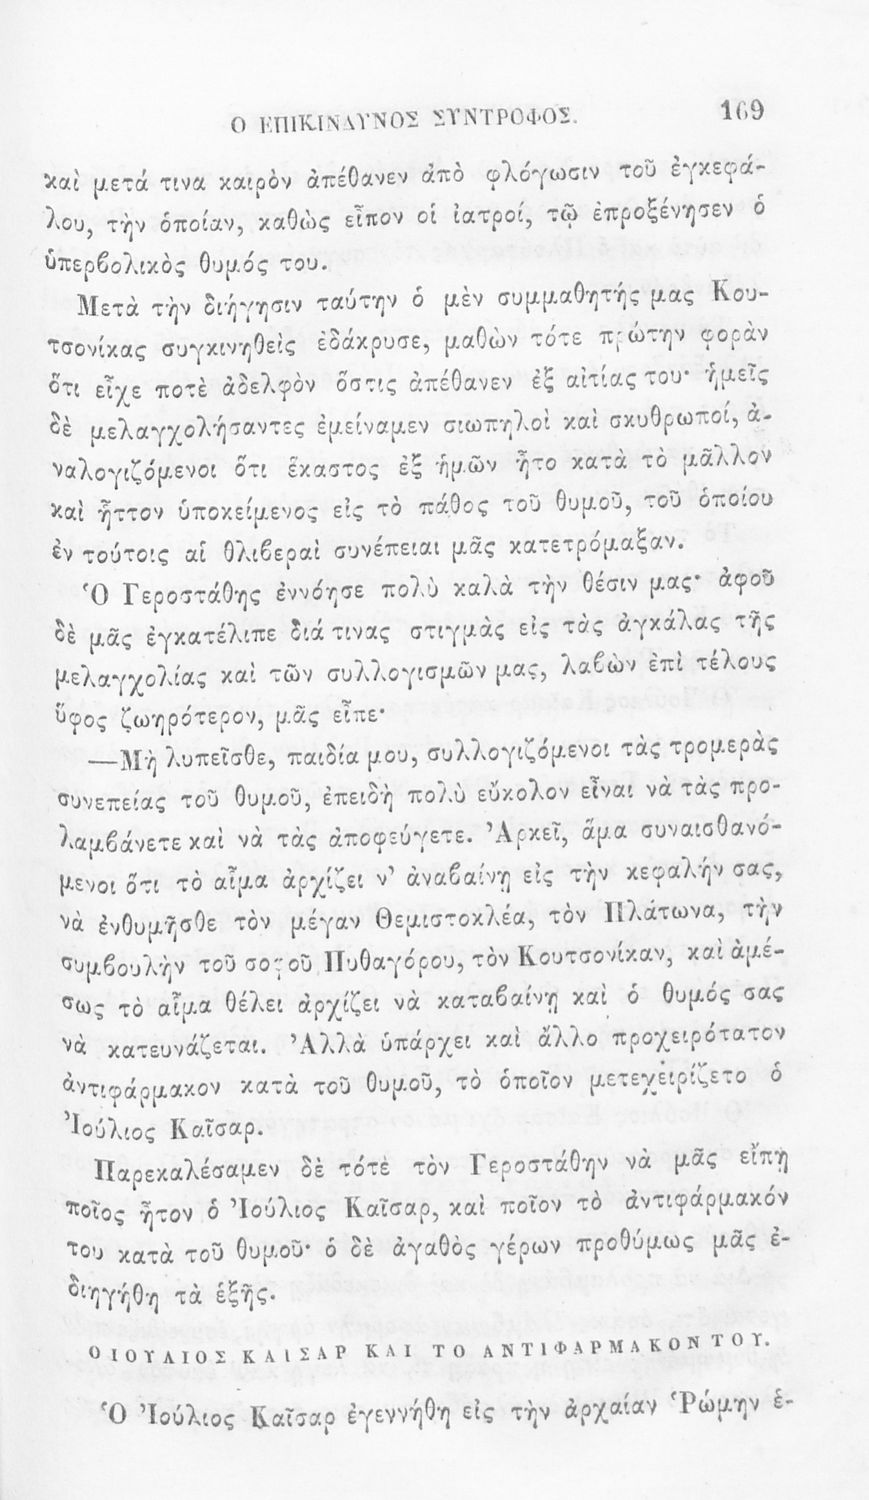 Ο ΕΠΙΚΙΝΔΥΝΟΣ ΣΥΝΤΡΟΦΟΣ. 169
καὶ μετά τινα καιρὸν ἀπέθανεν ἀπὸ φλόγωσιν τοῦ ἐγκεφά-
λου, τὴν ὁποίαν, καθὼς εἶπον οἱ ἰατροί, τῷ ἐπροξένησεν ὁ
ὑπερβολικὸς θυμός του.
Μετὰ τὴν διήγησιν ταύτην ὁ μὲν συμμαθητής μας Κου-
τσονίκας συγκινηθεὶς ἐδάκρυσε, μαθὼν τότε πρώτην φορὰν
ὅτι εἶχε ποτὲ ἀδελφὸν ὅστις ἀπέθανεν ἐξ αἰτίας του· ἡμεῖς
δὲ μελαγχολήσαντες ἐμείναμεν σιωπηλοὶ καὶ σκυθρωποί, ἀ-
ναλογιζόμενοι ὅτι ἕκαστος ἐξ ἡμῶν ἦτο κατὰ τὸ μᾶλλον
καὶ ἧττον ὑποκείμενος εἰς τὸ πάθος τοῦ θυμοῦ, τοῦ ὁποίου
ἐν τούτοις αἱ θλιβεραὶ συνέπειαι μᾶς κατετρόμαξαν.
Ὁ Γεροστάθης ἐννόησε πολὺ καλὰ τὴν θέσιν μας· ἀφοῦ
δὲ μᾶς ἐγκατέλιπε διά τινας στιγμὰς εἰς τὰς ἀγκάλας τῆς
μελαγχολίας καὶ τῶν συλλογισμῶν μας, λαβὼν ἐπὶ τέλους
ὕφος ζωηρότερον, μᾶς εἶπε·
—Μὴ λυπεῖσθε, παιδία μου, συλλογιζόμενοι τὰς τρομερὰς
συνεπείας τοῦ θυμοῦ, ἐπειδὴ πολὺ εὔκολον εἶναι νὰ τὰς προ-
λαμβάνετε καὶ νὰ τὰς ἀποφεύγετε. Ἀρκεῖ, ἅμα συναισθανό-
μενοι ὅτι τὸ αἷμα ἀρχίζει ν' ἀναβαίνῃ εἰς τὴν κεφαλήν σας,
νὰ ἐνθυμῆσθε τὸν μέγαν Θεμιστοκλέα, τὸν Πλάτωνα, τὴν
συμβουλὴν τοῦ σοφοῦ Πυθαγόρου, τὸν Κουτσονίκαν, καὶ ἀμέ-
σως τὸ αἷμα θέλει ἀρχίζει νὰ καταβαίνῃ καὶ ὁ θυμός σας
νὰ κατευνάζεται. Ἀλλὰ ὑπάρχει καὶ ἄλλο προχειρότατον
ἀντιφάρμακον κατὰ τοῦ θυμοῦ, τὸ ὁποῖον μετεχειρίζετο ὁ
Ἰούλιος Καῖσαρ.
Παρεκαλέσαμεν δὲ τότε τὸν Γεροστάθην νὰ μᾶς εἴπῃ
ποῖος ἦτον ὁ Ἰούλιος Καῖσαρ, καὶ ποῖον τὸ ἀντιφάρμακόν
του κατὰ τοῦ θυμοῦ· ὁ δὲ ἀγαθὸς γέρων προθύμως μᾶς ἐ-
διηγήθη τὰ ἑξῆς.
Ο ΙΟΥΛΙΟΣ ΚΑΙΣΑΡ ΚΑΙ ΤΟ ΑΝΤΙΦΑΡΜΑΚΟΝ ΤΟΥ.
Ὁ Ἰούλιος Καῖσαρ ἐγεννήθη εἰς τὴν ἀρχαίαν Ῥώμην ἑ-